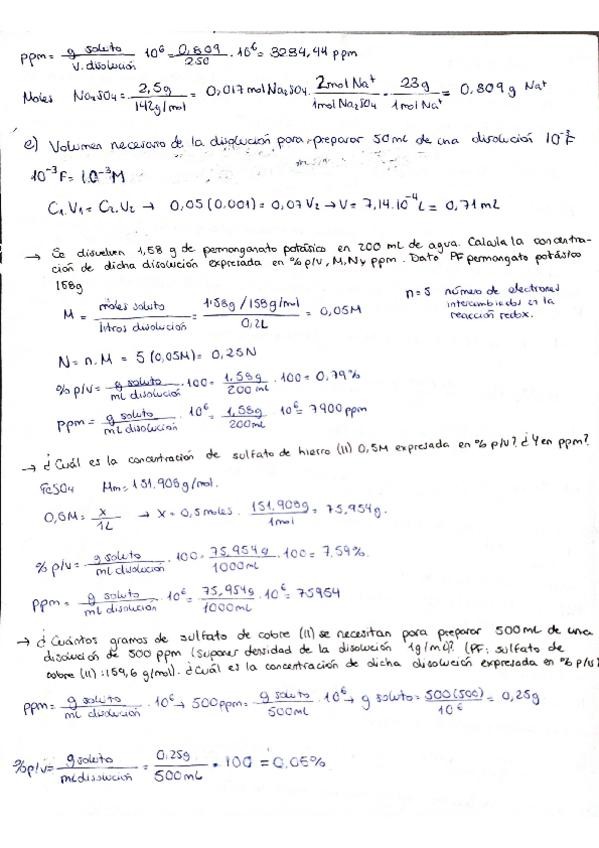 ppm = g soluto / v. disolución 10⁶ = 0,809 / 250 · 10⁶ = 3234,44 ppm
Moles Na₂SO₄ = 2,5g / 142g/mol = 0,017 mol Na₂SO₄ · 2mol Na⁺ / 1mol Na₂SO₄ · 23g / 1mol Na⁺ = 0,809 g Na⁺
e) Volumen necesario de la disolución para preparar 50ml de una disolución 10⁻³F
10⁻³F = 10⁻³M
C₁.V₁ = C₂.V₂ → 0,05 (0,001) = 0,07 V₂ → V = 7,14.10⁻⁴L = 0,71 mL
→ Se disuelven 1,58 g de permanganato potásico en 200 mL de agua. Calcula la concentra-
ción de dicha disolución expresada en % p/v, M, N y ppm. Dato PF permangato potásico
158g
M = moles soluto / litros disolución = 1.58g / 158g/mol / 0,2L = 0,05M
n = 5 número de electrones
intercambiados en la
reacción redox.
N = n. M = 5 (0,05M) = 0,25N
% p/v = g soluto / ml disolución · 100 = 1.58g / 200 mL · 100 = 0,79%
ppm = g soluto / mL disolución · 10⁶ = 1,58g / 200mL 10⁶ = 7900 ppm
→ ¿Cuál es la concentración de sulfato de hierro (II) 0,5M expresada en % p/v? ¿Y en ppm?
FeSO₄ Mm = 151.908 g/mol.
0,5M = x / 1L → x = 0,5 moles · 151.908g / 1mol = 75,954g.
% p/v = g soluto / ml disolución · 100 = 75.954g / 1000mL · 100 = 7,59%.
ppm = g soluto / ml disolución · 10⁶ = 75,954g / 1000mL 10⁶ = 75954
→ ¿Cuántos gramos de sulfato de cobre (II) se necesitan para preparar 500ml de una
disolución de 500 ppm (suponer densidad de la disolución 1g/mL)? (PF: sulfato de
cobre (II): 159,6 g/mol). ¿Cuál es la concentración de dicha disolución expresada en % p/v?
ppm = g soluto / ml disolución · 10⁶ → 500ppm = g soluto / 500mL · 10⁶ → g soluto = 500 (500) / 10⁶ = 0,25g
% p/v = g soluto / ml disolución = 0,25g / 500mL · 100 = 0,05%